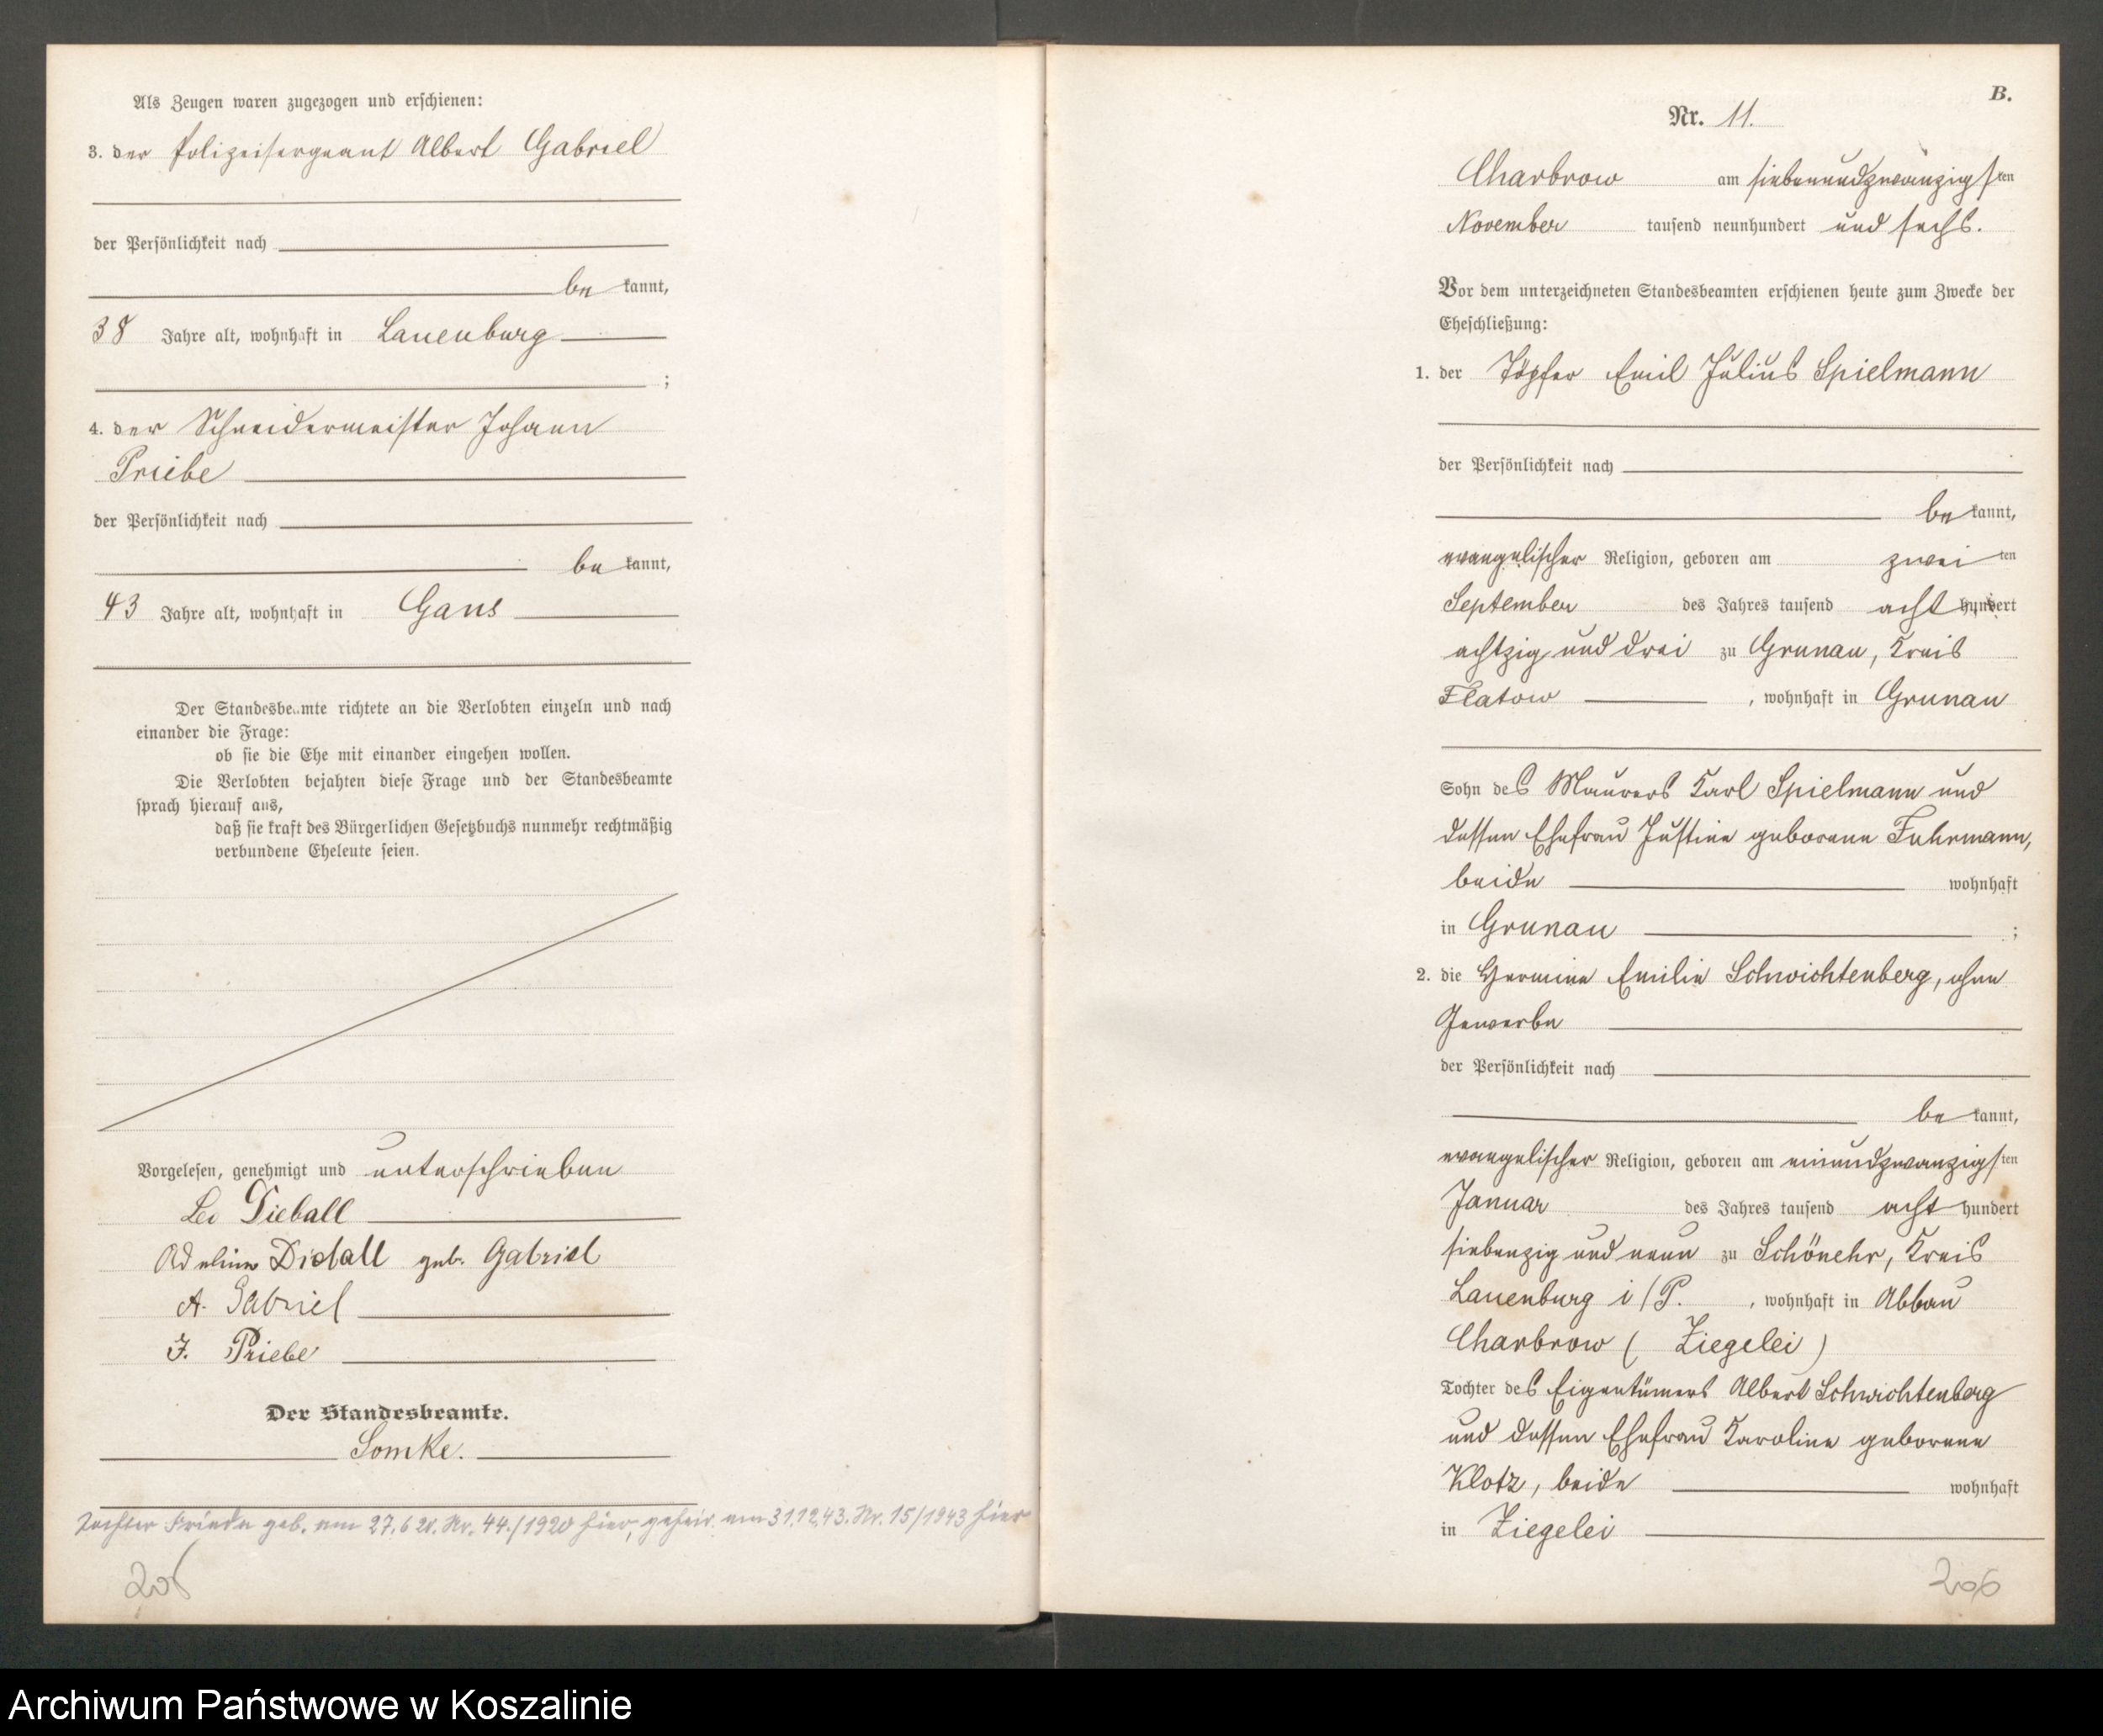 Als Zeugen waren zugezogen und erschienen:
3. der Polizeisergeant Albert Gabriel
der Persönlichkeit nach
be kannt,
38 Jahre alt, wohnhaft in Lauenburg
;
4. der Schneidermeister Johann
Priebe
der Persönlichkeit nach
be kannt,
43 Jahre alt, wohnhaft in Gans
Der Standesbeamte richtete an die Verlobten einzeln und nach
einander die Frage:
ob sie die Ehe mit einander eingehen wollen.
Die Verlobten bejahten diese Frage und der Standesbeamte
sprach hierauf aus,
daß sie kraft des Bürgerlichen Gesetzbuchs nunmehr rechtmäßig
verbundene Eheleute seien.
Vorgelesen, genehmigt und unterschrieben
Leo Dieball
Adeline Dieball geb. Gabriel
A. Gabriel
J. Priebe
Der Standesbeamte.
Somke.
Tochter Frieda geb. am 27.6.20. Nr. 44./1920 hier, geheir. am 31.12.43. Nr. 15/1943 hier
205
B.
Nr. 11.
Charbrow am siebenundzwanzigsten
November tausend neunhundert und sechs.
Vor dem unterzeichneten Standesbeamten erschienen heute zum Zwecke der
Eheschließung:
1. der Töpfer Emil Julius Spielmann
der Persönlichkeit nach
be kannt,
evangelischer Religion, geboren am zwei ten
September des Jahres tausend acht hundert
achtzig und drei zu Grunau, Kreis
Flatow , wohnhaft in Grunau
Sohn des Maurers Karl Spielmann und
dessen Ehefrau Justine geborene Fuhrmann,
beide wohnhaft
in Grunau ;
2. die Hermine Emilie Schwichtenberg, ohne
Gewerbe
der Persönlichkeit nach
be kannt,
evangelischer Religion, geboren am einundzwanzigsten
Januar des Jahres tausend acht hundert
siebenzig und neun zu Schönehr, Kreis
Lauenburg i/P. , wohnhaft in Abbau
Charbrow (Ziegelei)
Tochter des Eigentümers Albert Schwichtenberg
und dessen Ehefrau Karoline geborene
Klotz, beide wohnhaft
in Ziegelei
206
Archiwum Państwowe w Koszalinie